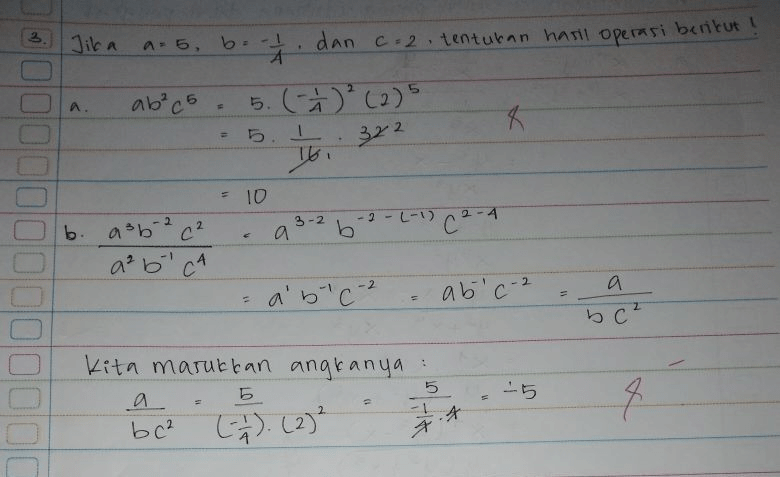 3. Jika a = 5, b = -1/4, dan c = 2, tentukan hasil operasi berikut!
a. ab²c⁵ = 5. (-1/4)² (2)⁵
= 5. 1/16 . 32 2
1
= 10
b. a³b⁻²c² / a²b⁻¹c⁴ = a³⁻² b⁻²⁻⁽⁻¹⁾ c²⁻⁴
= a¹b⁻¹c⁻² = ab⁻¹c⁻² = a / bc²
Kita masukkan angkanya :
a / bc² = 5 / (-1/4). (2)² = 5 / -1/4 . 4 = -5